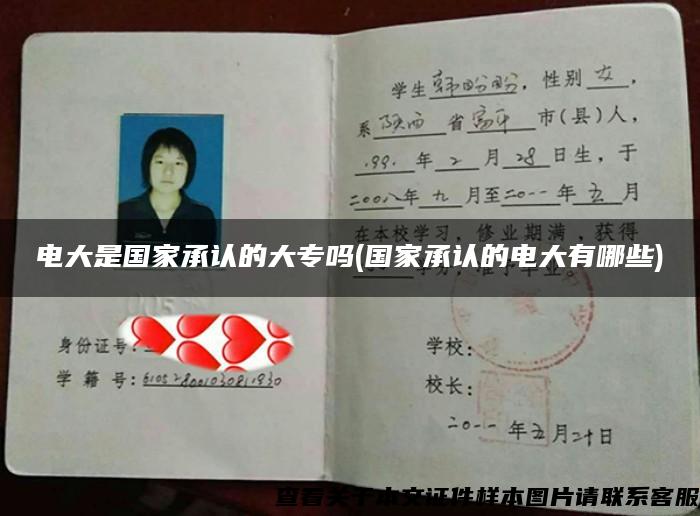 学生韩盼盼，性别女，
系陕西省富平市(县)人，
1991年2月28日生，于
二00八年九月至二0一一年五月
在本校学习，修业期满，获得
学分，准予毕业。
电大是国家承认的大专吗(国家承认的电大有哪些)
身份证号：
学籍号：
学校：
校长：
二0一一年五月二十日
查看关于本文证件样本图片请联系客服